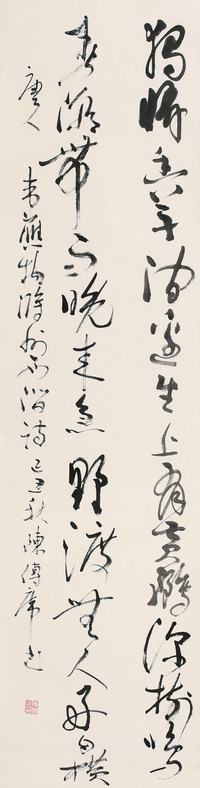 獨憐幽草澗邊生上有黃鸝深樹鳴
春潮帶雨晚來急野渡無人舟自橫
唐人韋應物滁州西澗詩己丑秋陳傳席